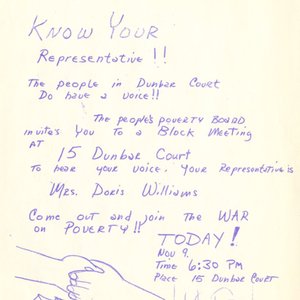 Know Your
Representative!!
The people in Dunbar Court
Do have a voice!!
The people's poverty BOARD
invites You to a Block Meeting
AT
15 Dunbar Court
To hear your voice. Your Representative is
Mrs. Doris Williams
Come out and join the WAR
on POVERTY!!
TODAY!
Nov 9.
Time 6:30 PM
Place 15 Dunbar Court